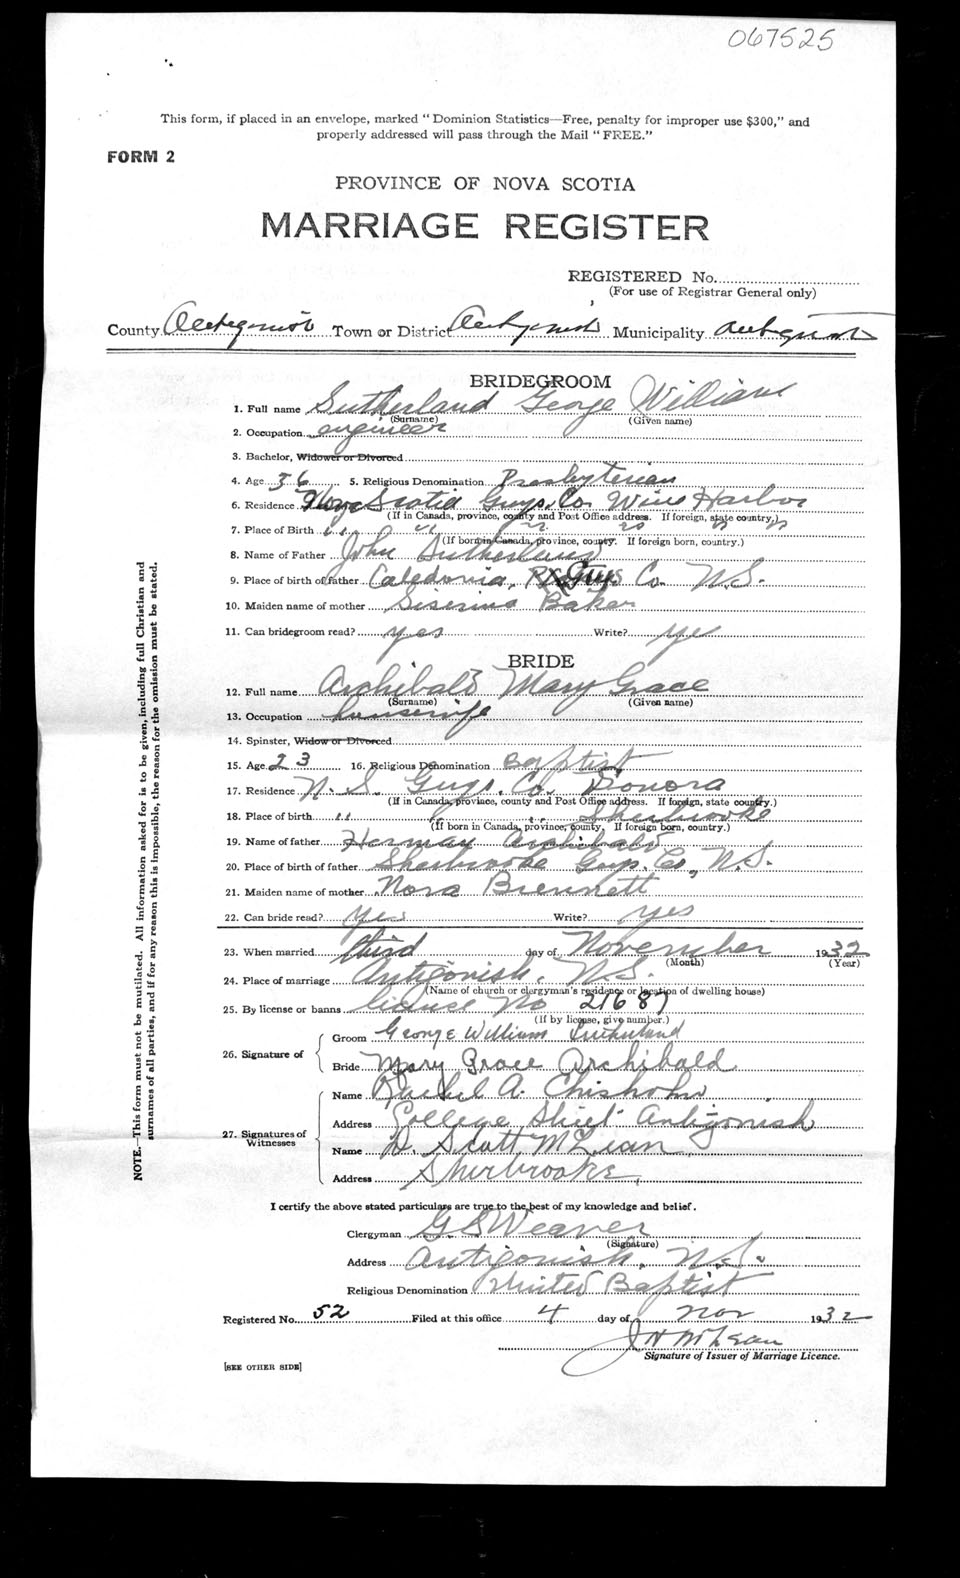 067525
This form, if placed in an envelope, marked "Dominion Statistics—Free, penalty for improper use $300," and
properly addressed will pass through the Mail "FREE."
FORM 2
PROVINCE OF NOVA SCOTIA
MARRIAGE REGISTER
REGISTERED No.
(For use of Registrar General only)
County Antigonish Town or District Antigonish Municipality Antigonish
BRIDEGROOM
1. Full name Sutherland George William
(Surname) (Given name)
2. Occupation engineer
3. Bachelor, Widower or Divorced
4. Age 36 5. Religious Denomination Presbyterian
6. Residence Nova Scotia Guys. Co. Wine Harbor
(If in Canada, province, county and Post Office address. If foreign, state country.)
7. Place of Birth " " " " " "
(If born in Canada, province, county. If foreign born, country.)
8. Name of Father John Sutherland
9. Place of birth of father Caledonia, Guys Co. N.S.
10. Maiden name of mother Baker
11. Can bridegroom read? yes Write? ye
BRIDE
12. Full name Archibald Mary Grace
(Surname) (Given name)
13. Occupation housewife
14. Spinster, Widow or Divorced
15. Age 23 16. Religious Denomination Baptist
17. Residence N. S. Guys. Co. Sonora
(If in Canada, province, county and Post Office address. If foreign, state country.)
18. Place of birth " " " Sherbrooke
(If born in Canada, province, county. If foreign born, country.)
19. Name of father Archibald
20. Place of birth of father Sherbrooke Guys. Co., N.S.
21. Maiden name of mother Nora Brennett
22. Can bride read? yes Write? yes
23. When married third day of November 1932
(Month) (Year)
24. Place of marriage Antigonish, N.S.
(Name of church or clergyman's residence or location of dwelling house)
25. By license or banns license No 21687
(If by license, give number.)
26. Signature of
Groom George William Sutherland
Bride Mary Grace Archibald
27. Signatures of Witnesses
Name Rachel A. Chisholm
Address College Street Antigonish
Name D. Scott McLean
Address Sherbrooke,
I certify the above stated particulars are true to the best of my knowledge and belief.
Clergyman G S Weaver
(Signature)
Address Antigonish, N.S.
Religious Denomination United Baptist
Registered No. 52 Filed at this office 4 day of Nov 1932
J H McLean
Signature of Issuer of Marriage Licence.
[SEE OTHER SIDE]
NOTE.—This form must not be mutilated. All information asked for is to be given, including full Christian and
surnames of all parties, and if for any reason this is impossible, the reason for the omission must be stated.